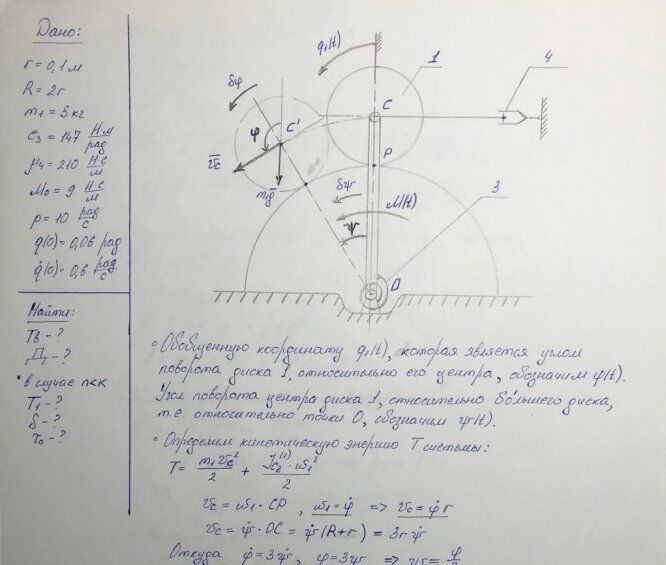 Дано:
r = 0,1 м
R = 2r
m₁ = 5 кг
c₃ = 147 Н·м/рад
μ₄ = 210 Н·с/м
M₀ = 9 Н·с/м
p = 10 рад/с
q(0) = 0,06 рад
q̇(0) = 0,6 рад/с
Найти:
Тв - ?
Д₁ - ?
* в случае n<k
T₁ - ?
δ - ?
τ₀ - ?
q₁(t)
1
4
δφ
φ
C'
C
v̄c
m₁ḡ
P
δψ
M(t)
3
ψ
O
Обобщенную координату q₁(t), которая является углом
поворота диска 1, относительно его центра, обозначим φ(t).
Угол поворота центра диска 1, относительно большего диска,
т.е. относительно точки O, обозначим ψ(t).
Определим кинетическую энергию T системы:
T = m₁vc²/2 + Jc₂⁽¹⁾·ω₁²/2
vc = ω₁·CP, ω₁ = φ̇ => vc = φ̇r
vc = ψ̇·OC = ψ̇(R+r) = 3rψ̇
Откуда φ̇ = 3ψ̇, φ = 3ψ => ψ = φ